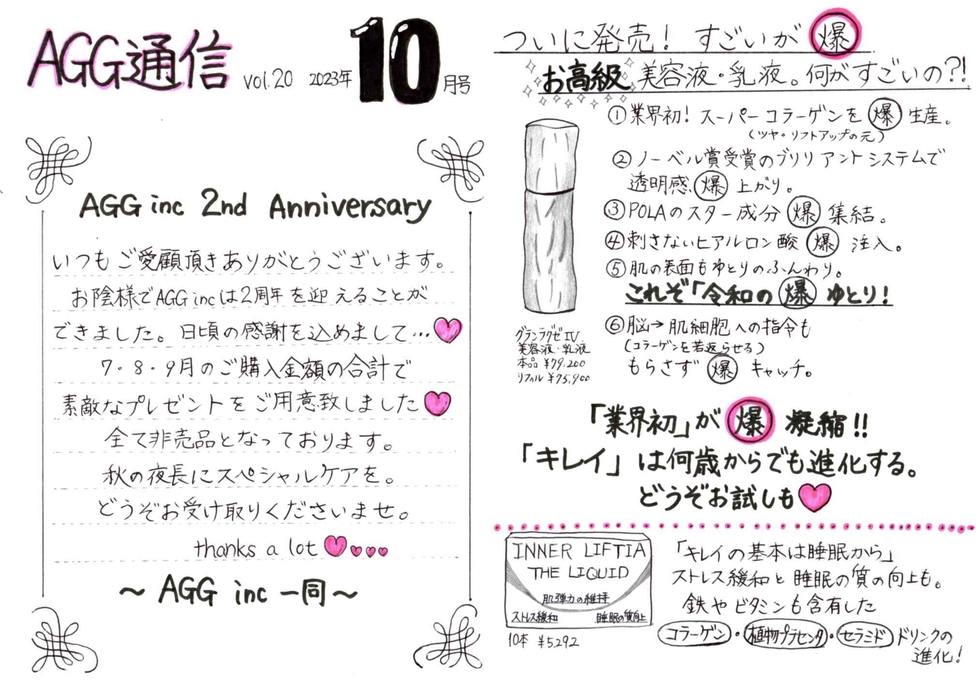 AGG通信 vol.20 2023年 10月号
AGG inc 2nd Anniversary
いつもご愛顧頂きありがとうございます。
お陰様でAGG incは2周年を迎えることが
できました。日頃の感謝を込めまして…
7・8・9月のご購入金額の合計で
素敵なプレゼントをご用意致しました
全て非売品となっております。
秋の夜長にスペシャルケアを。
どうぞお受け取りくださいませ。
thanks a lot
～ AGG inc 一同～
ついに発売! すごいが 爆
お高級 美容液・乳液。何がすごいの?!
①業界初! スーパーコラーゲンを 爆 生産。
(ツヤ・リフトアップの元)
②ノーベル賞受賞のブリリアントシステムで
透明感 爆 上がり。
③POLAのスター成分 爆 集結。
④刺さないヒアルロン酸 爆 注入。
⑤肌の表面もゆとりのふんわり。
これぞ「令和の 爆 ゆとり!
⑥脳→肌細胞への指令も
(コラーゲンを若返らせる)
もらさず 爆 キャッチ。
グランラグゼⅣ
美容液・乳液
本品 ¥79,200
リフィル ¥75,900
「業界初」が 爆 凝縮!!
「キレイ」は何歳からでも進化する。
どうぞお試しも
INNER LIFTIA
THE LIQUID
肌弾力の維持
ストレス緩和 睡眠の質向上
10本 ¥5,292
「キレイの基本は睡眠から」
ストレス緩和と睡眠の質の向上も。
鉄やビタミンも含有した
コラーゲン・植物プラセンタ・セラミドドリンクの
進化!